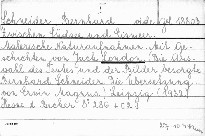 Schneider Bernhard
Zwischen Südsee und
Malerische Naturaufnahmen. Mit
schichten von Jack London. Die Aus-
wahl des Textes und der Bilder besorgte
Bernhard Schneider. Die Übersetzung
von Erwin Magnus. Leipzig: (1932)
Hesse & Becker.